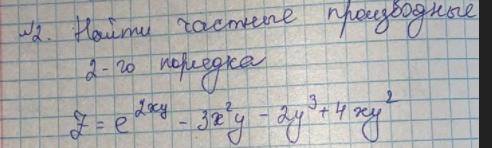 №2. Найти частные производные
2-го порядка
Z = e^{2xy} - 3x²y - 2y³ + 4xy²